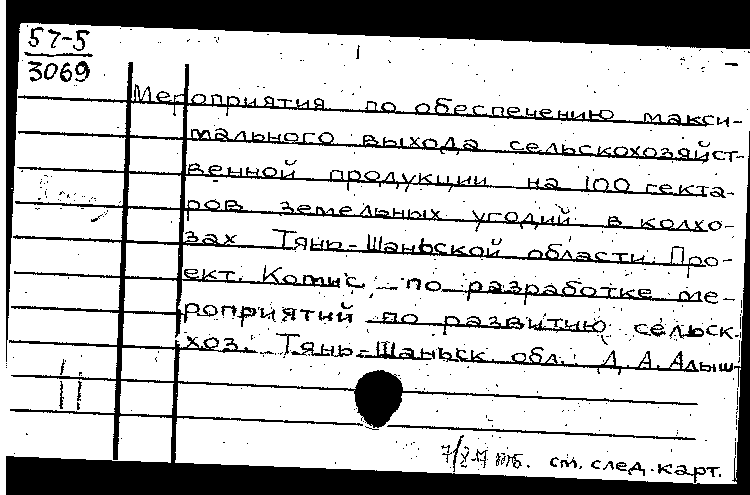 57-5
3069
Мероприятия по обеспечению макси-
мального выхода сельскохозяйст-
венной продукции на 100 гекта-
ров земельных угодий в колхо-
зах Тянь-Шаньской области. Про-
ект. Комис. по разработке ме-
роприятий по развитию сельск.
хоз. Тянь-Шаньск. обл.: Д. А. Алыш-
см. след. карт.